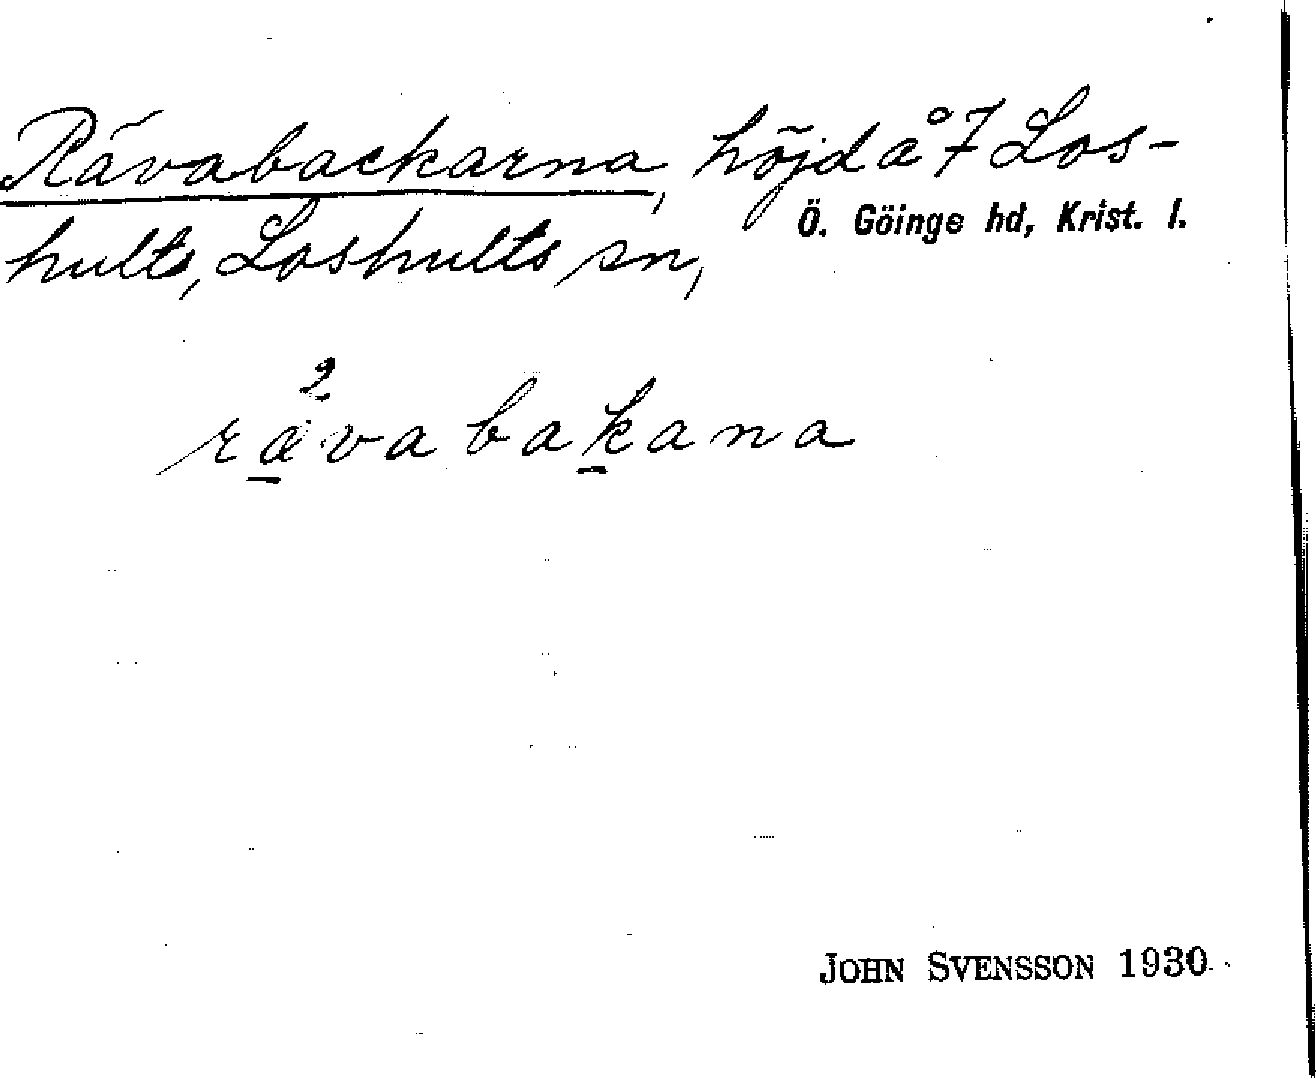 Rävabackarna, höjd å 7 Los-
hults, Loshults sn,
Ö. Göinge hd, Krist. l.
2
rävabakana
JOHN SVENSSON 1930